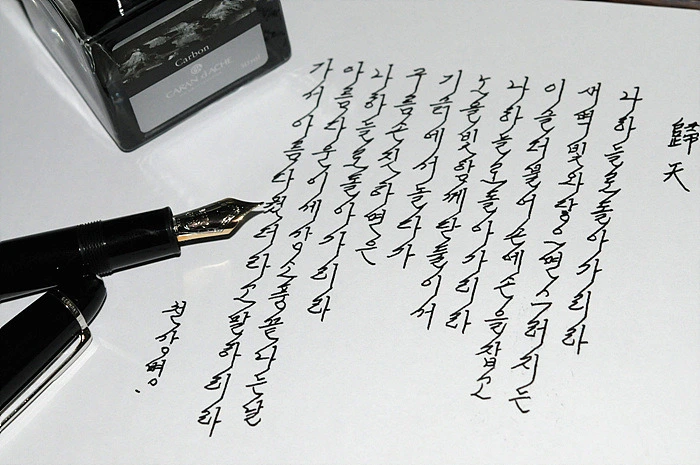 歸天
나하늘로돌아가리라
새벽빛와닿으면스러지는
이슬더불어손에손을잡고
나하늘로돌아가리라
노을빛함께단둘이서
기슭에서놀다가
구름손짓하면은
나하늘로돌아가리라
아름다운이세상소풍끝나는날
가서아름다웠더라고말하리라
천상병.
Carbon
CARAN d'ACHE